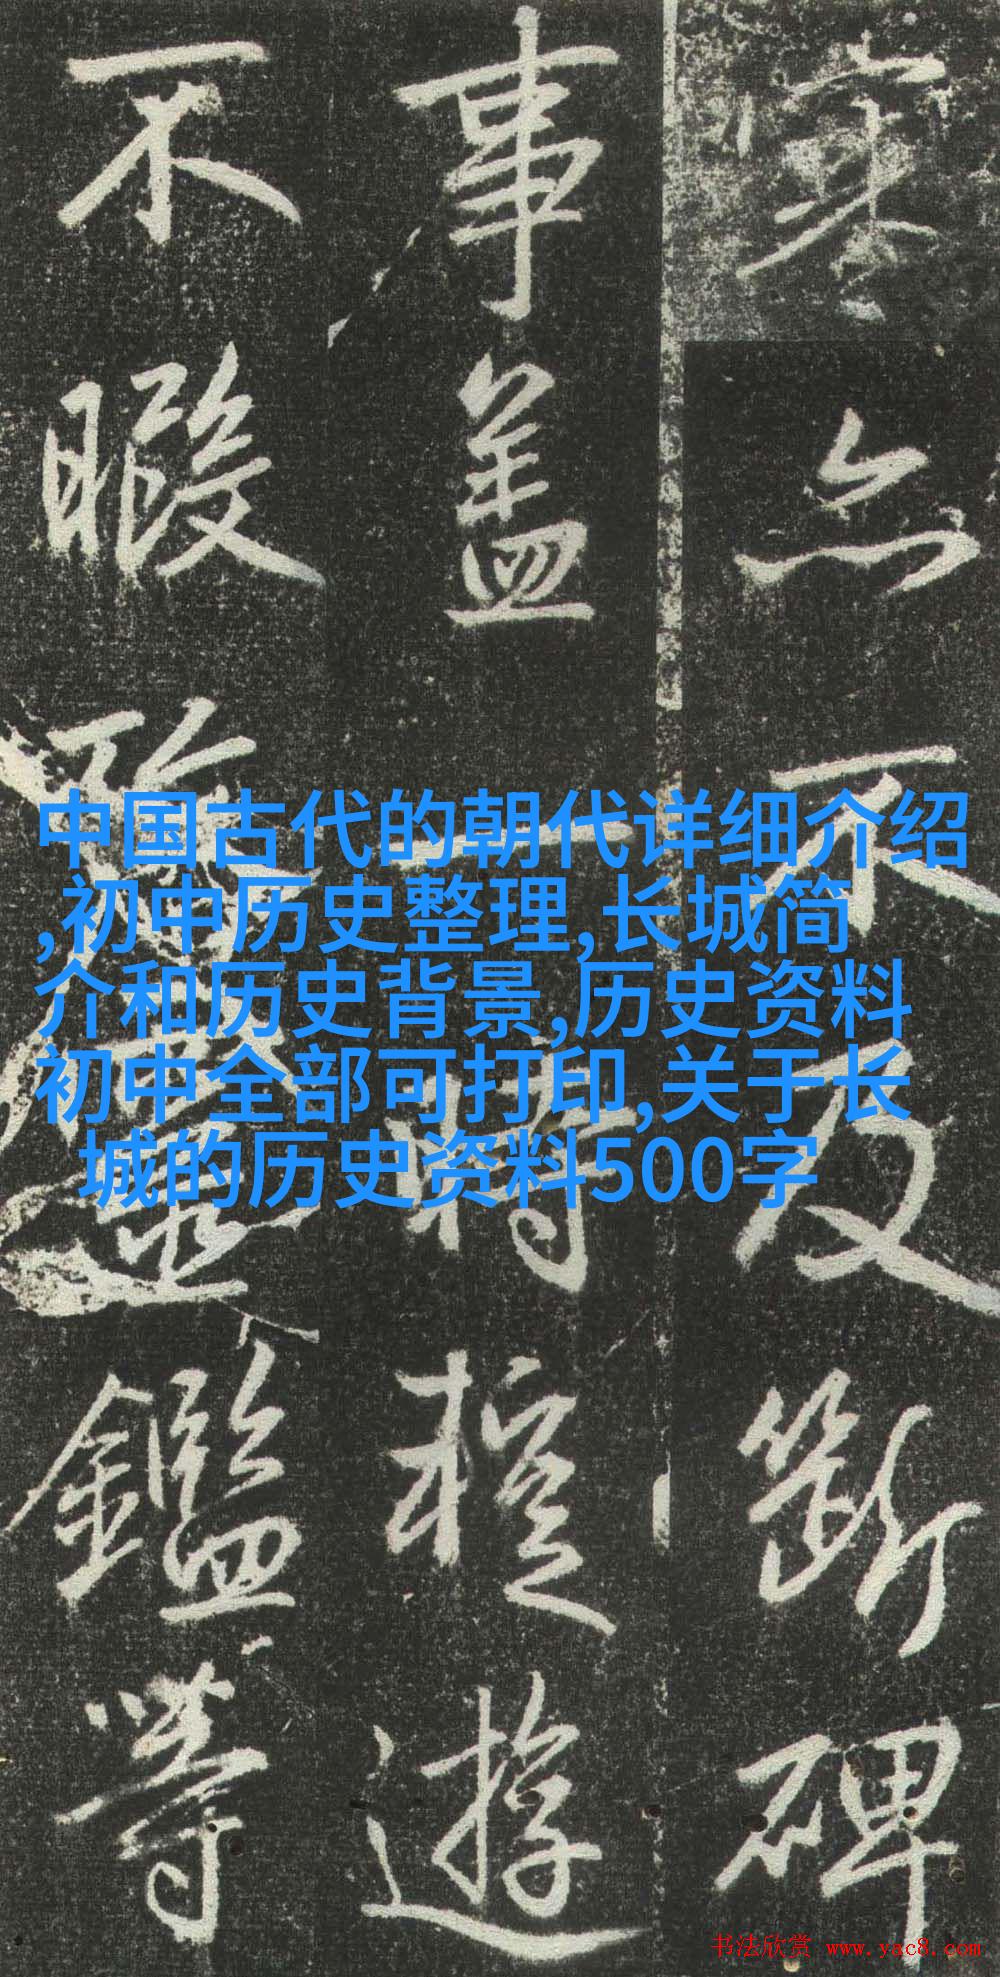 亦不及斷碑
事蓋一時遊
不暇鑑等
中国古代的朝代详细介绍
,初中历史整理,长城简
介和历史背景,历史资料
初中全部可打印,关于长
城的历史资料500字
书法欣赏 www.yac8.com